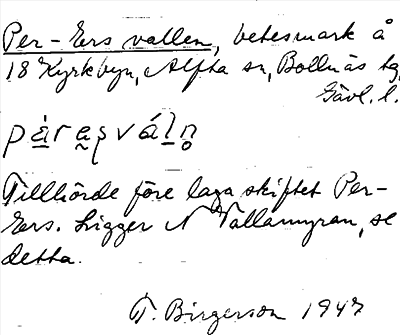 Per-Ers vallen, betesmark å
18 Kyrkbyn, Alfta sn, Bollnäs tg,
Gävl. l.
pä̀rəșvál̲n̥
Tillhörde före laga skiftet Per-
Ers. Ligger N Tallamyran, se
detta.
T. Birgerson 1947